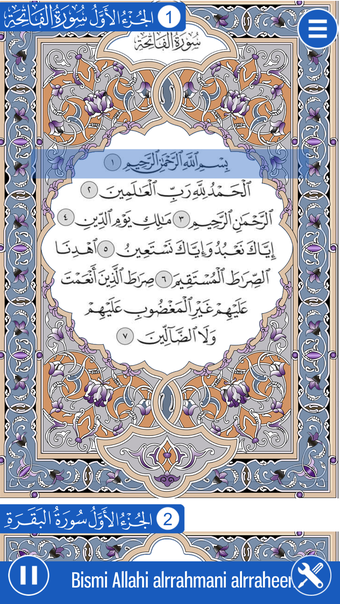 الجزء الأول سورة الفاتحة 1
سورة الفاتحة
بِسْمِ اللَّهِ الرَّحْمَٰنِ الرَّحِيمِ ١
الْحَمْدُ لِلَّهِ رَبِّ الْعَالَمِينَ ٢
الرَّحْمَٰنِ الرَّحِيمِ ٣ مَالِكِ يَوْمِ الدِّينِ ٤
إِيَّاكَ نَعْبُدُ وَإِيَّاكَ نَسْتَعِينُ ٥ اهْدِنَا
الصِّرَاطَ الْمُسْتَقِيمَ ٦ صِرَاطَ الَّذِينَ أَنْعَمْتَ
عَلَيْهِمْ غَيْرِ الْمَغْضُوبِ عَلَيْهِمْ
وَلَا الضَّالِّينَ ٧
الجزء الأول سورة البقرة 2
Bismi Allahi alrrahmani alrraheem